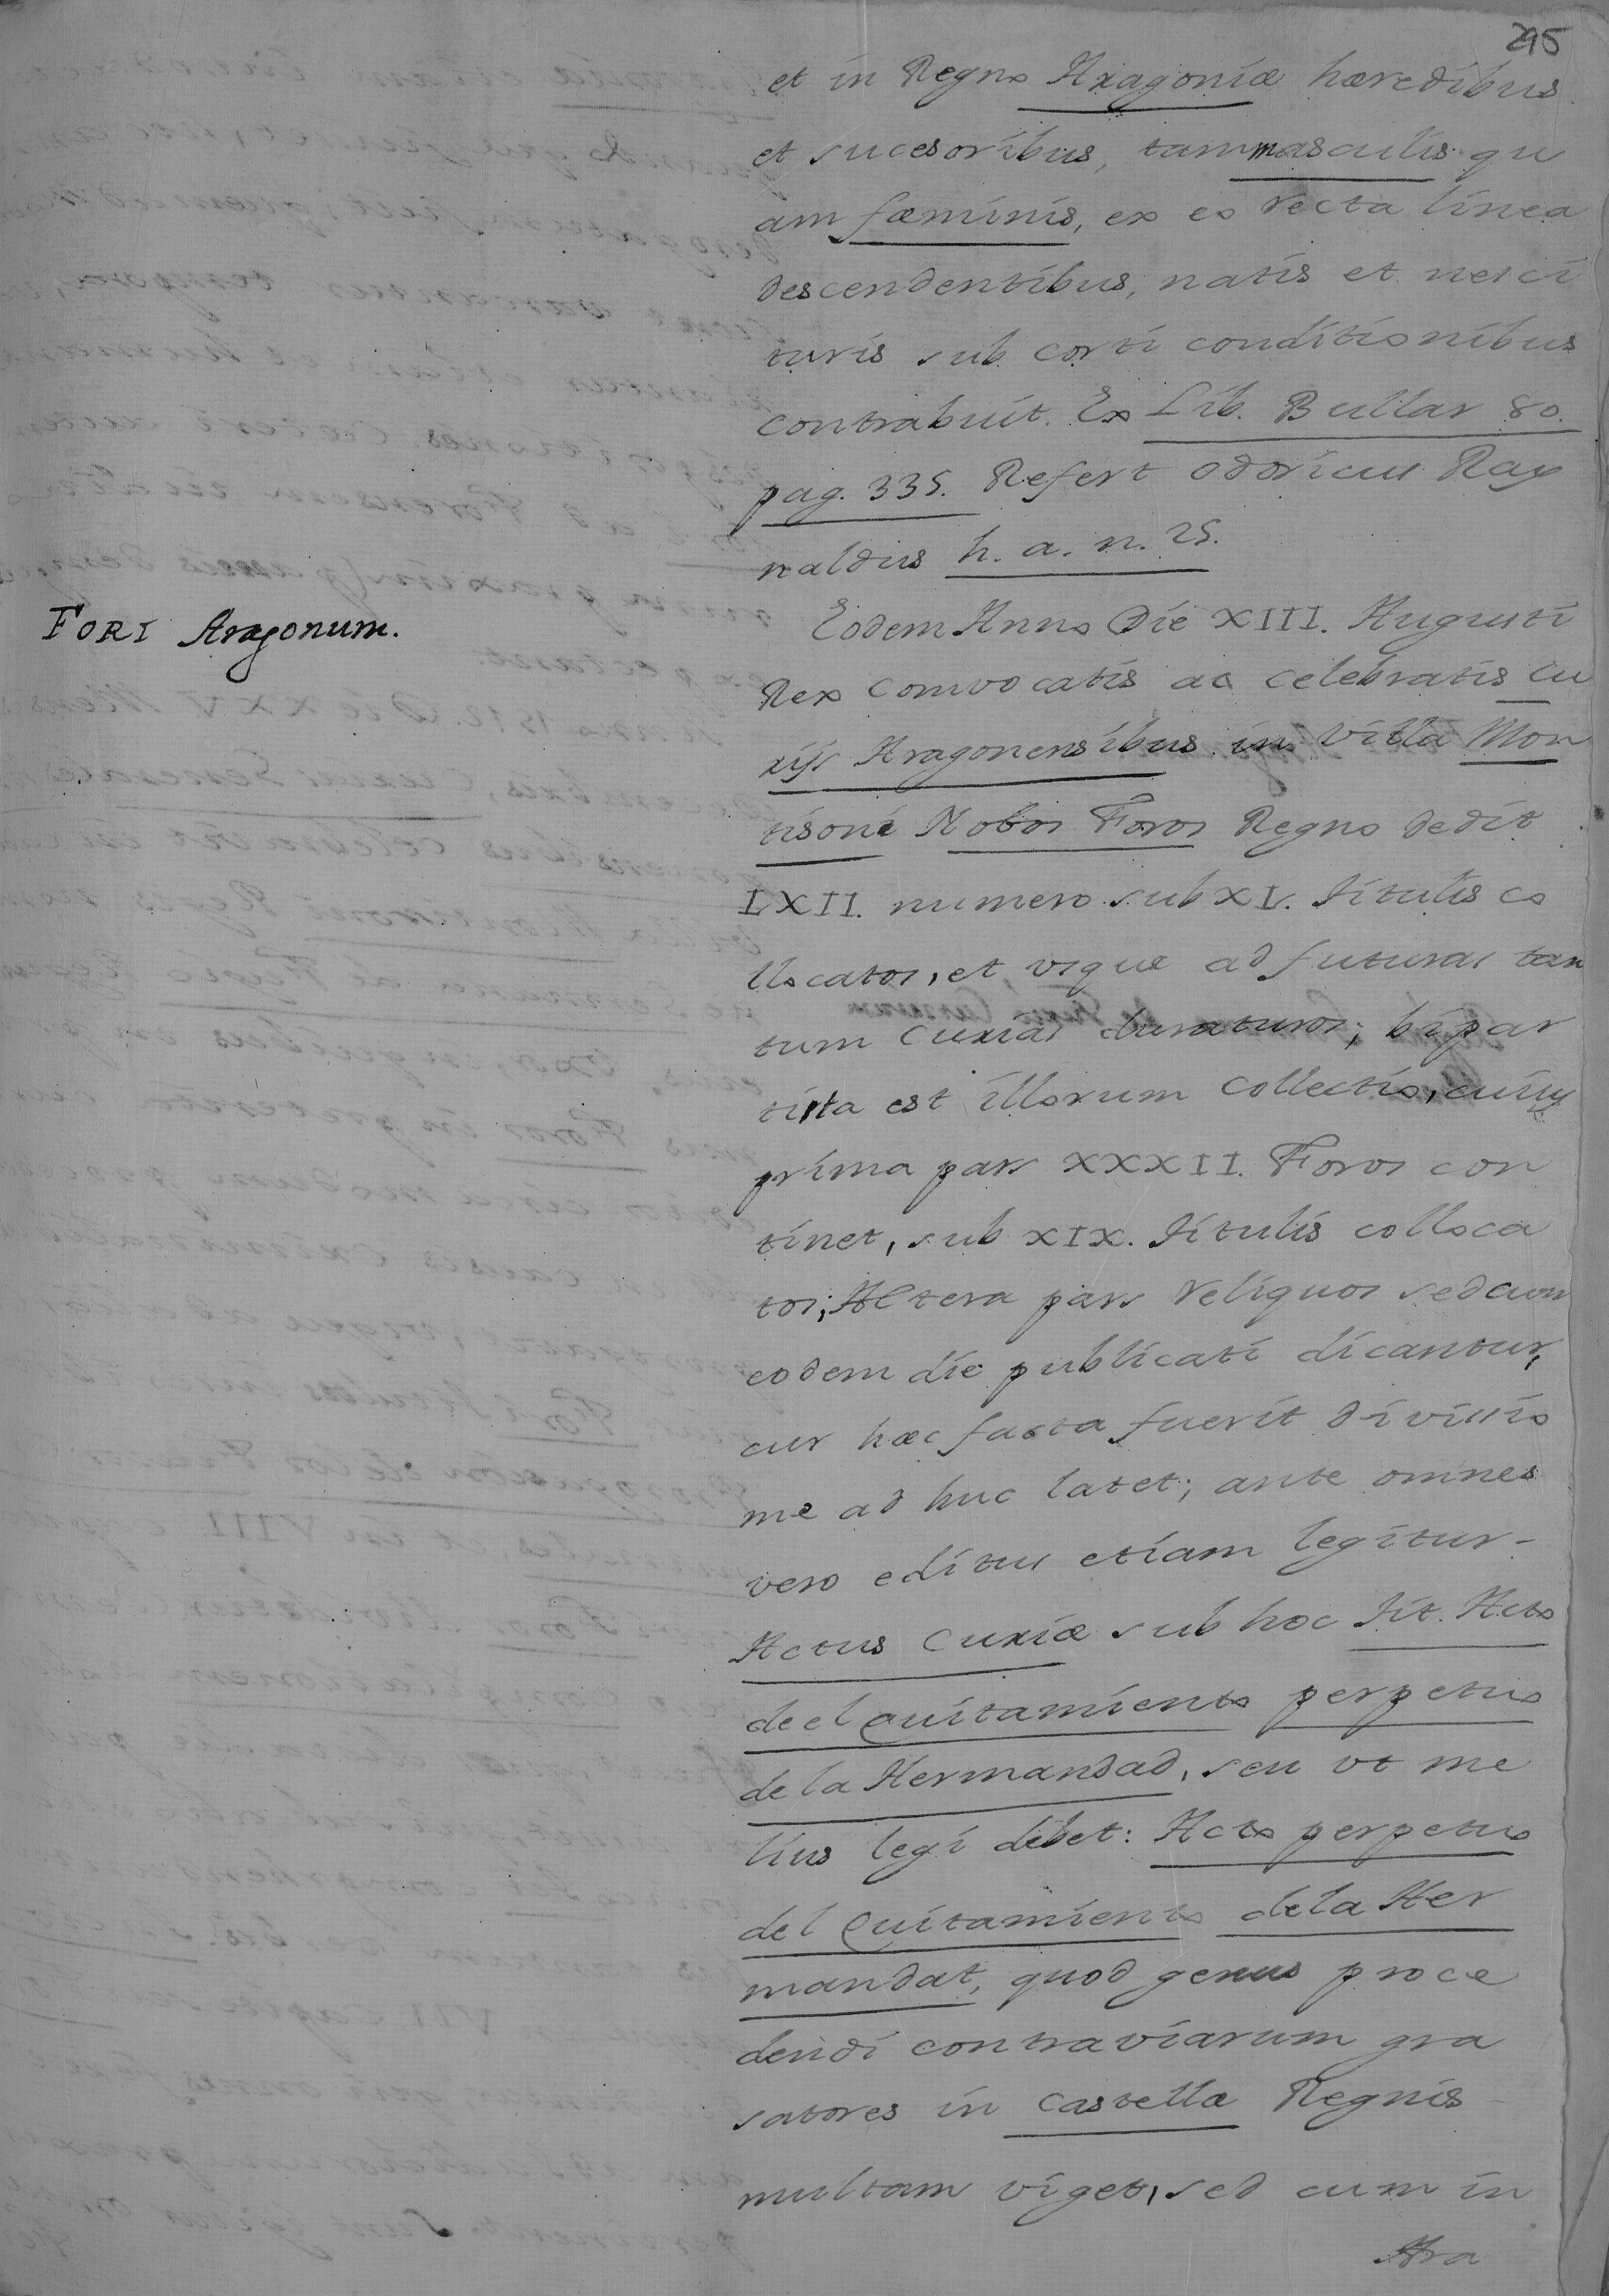 295
et in Regno Aragoniæ hæredibus
et sucesoribus, tam masculis qu
am fæminis, ex eo recta linea
descendentibus, natis et nesci
turis sub corti conditionibus
contrabuit. Ex Lib. Bullar 80.
pag. 335. Refert Odoricus Ray
naldus h. a. n. 25.
FORI Aragonum.
Eodem Anno Die XIII. Augusti
Rex convocatis ac celebratis Cu
rijs Aragonensibus in Villa Mon
tisoni Nobos Foros Regno dedit
LXII. numero sub XL. Titulis co
llocatos, et usque ad futuras tan
tum Curias duraturos; bipar
tita est illorum collectio, cuius
prima pars XXXII. Foros con
tinet, sub XIX. Titulis colloca
tos; Altera pars reliquos sed cum
eodem die publicati dicantur,
cur hæc facta fuerit divissio
me ad huc latet; ante omnes
vero editus etiam legitur-
Actus Curiæ sub hoc Tit. Acto
de el quitamiento perpetuo
de la Hermandad, seu ut me
lius legi debet: Acto perpetuo
del quitamiento de la Her
mandat, quod genus proce
dendi contra viarum gra
satores in Castellæ Regnis
multam viget, sed cum in
Ara